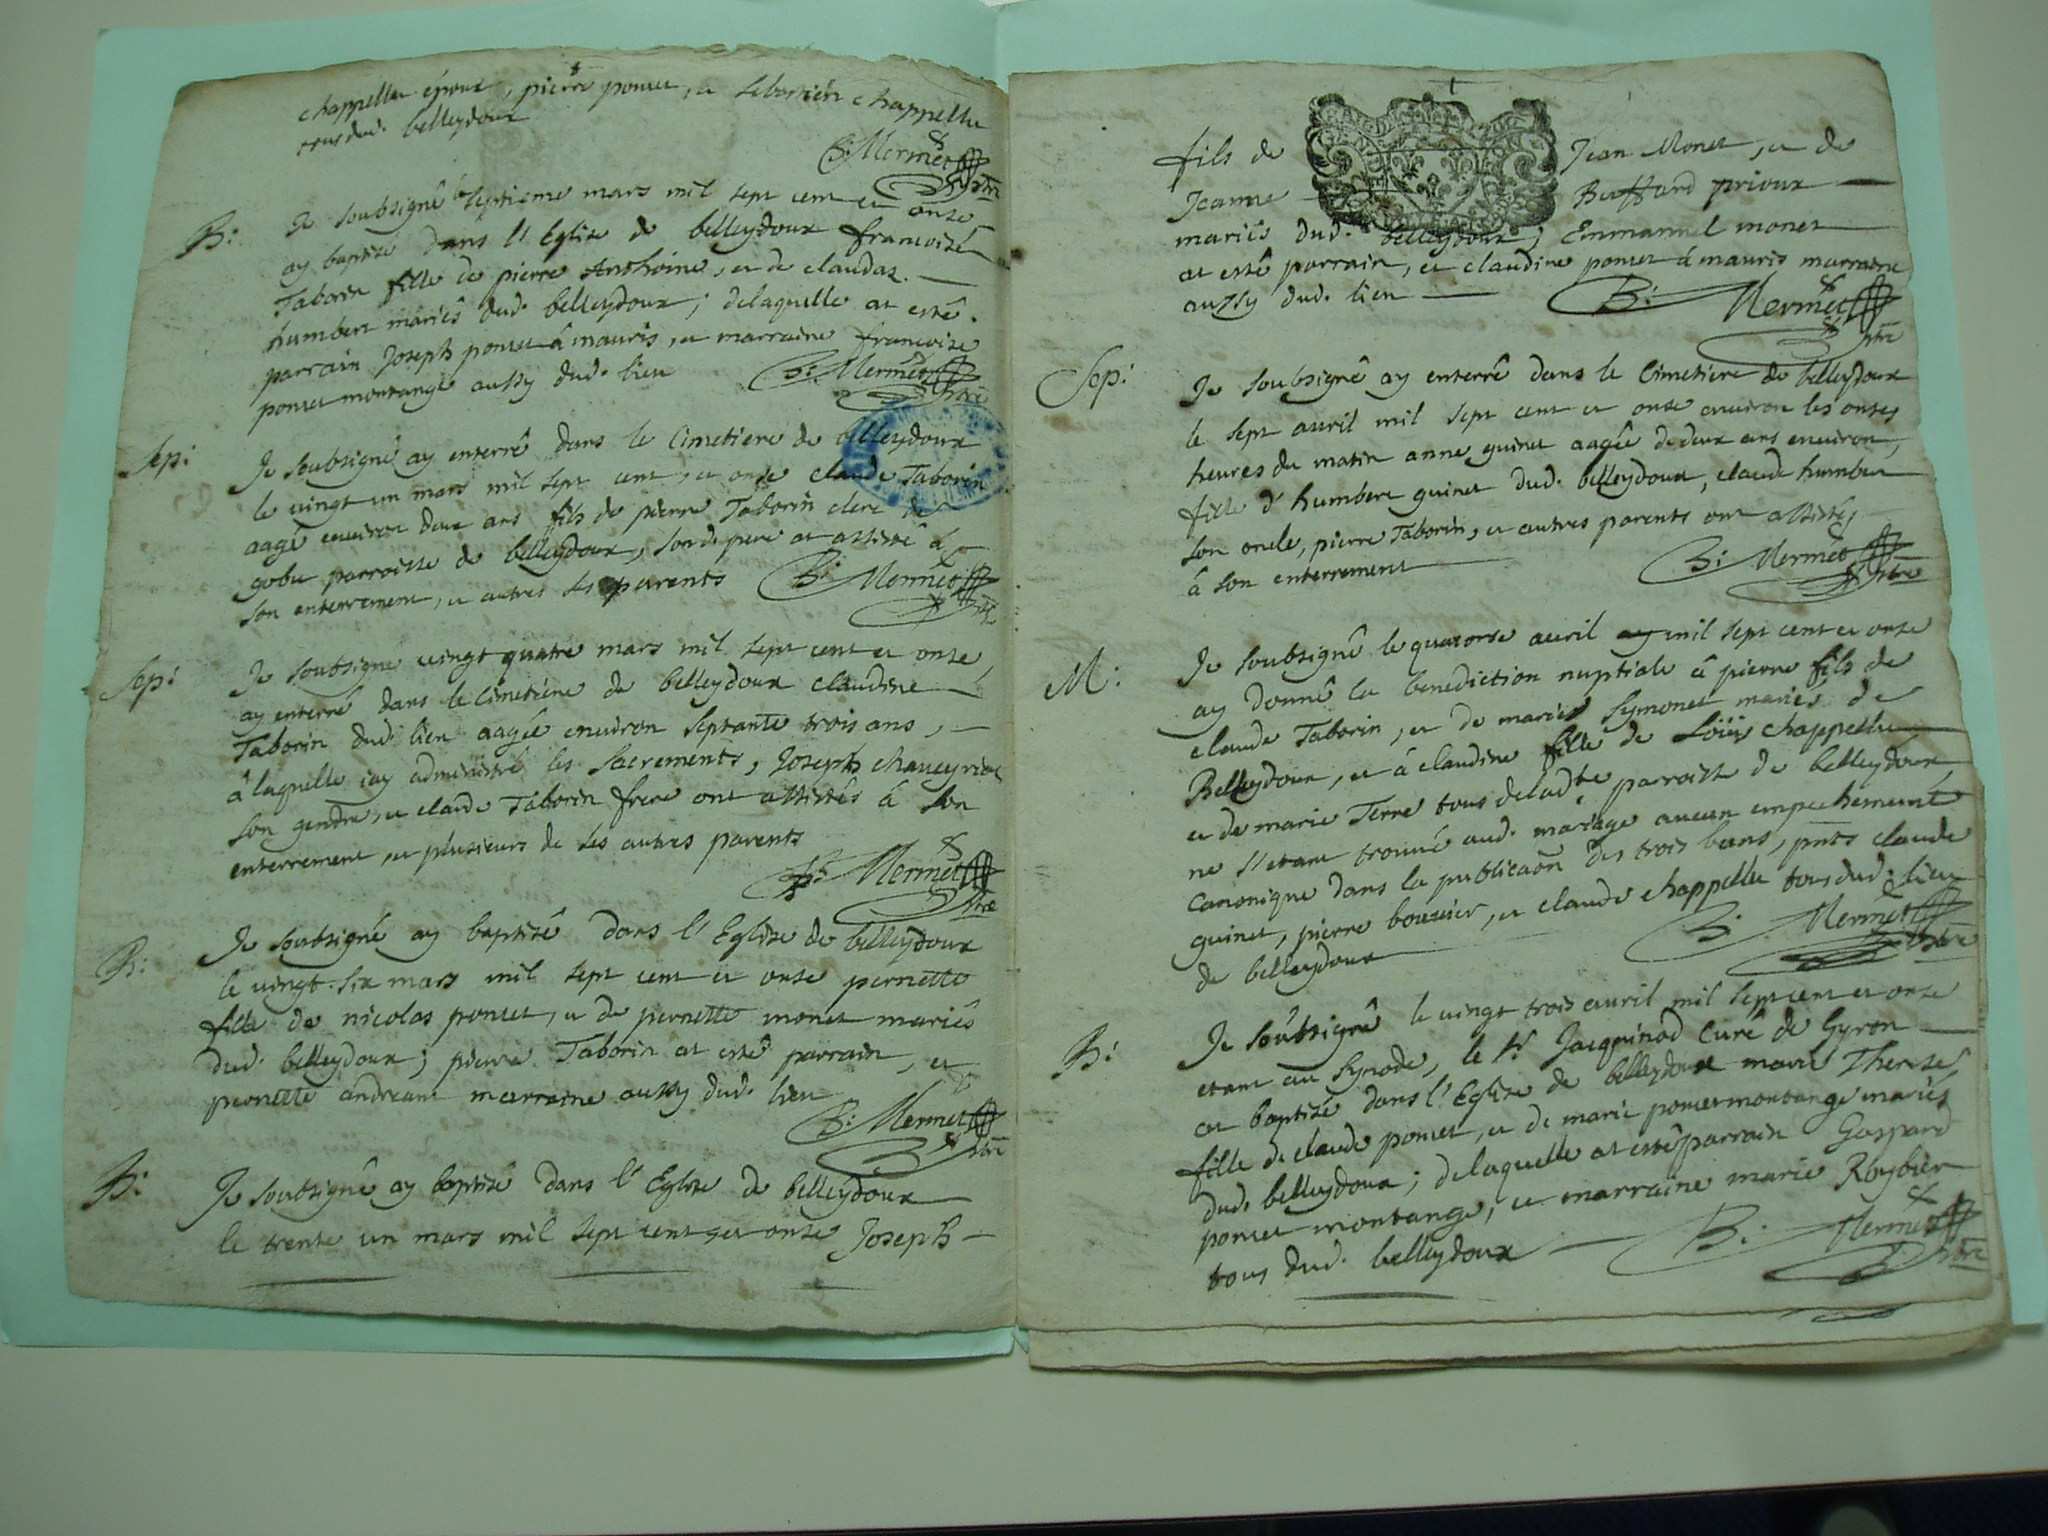 chappellu époux, pierre poncet, et sebastien chappellu
tous dud. belleydoux
B: Mermet ptre
B: Je soubsigné le septieme mars mil sept cent et onze
ay baptizé dans l'Eglize de belleydoux francoise
Taborin fille de pierre Anthoine, et de claudaz
humbert mariés dud. belleydoux; delaquelle at esté
parrain Joseph poncet à mauris, et marraine francoize
poncet montange aussy dud. lieu B: Mermet ptre
Sep: Je soubsigné ay enterré dans le Cimetiere de belleydoux
le vingt un mars mil sept cent, et onze claude Taborin
aagé environ deux ans fils de pierre Taborin clerc de
gobu parroisse de belleydoux, sond. pere at assisté à
son enterrement, et autres ses parents B: Mermet ptre
Sep: Je soubsigné vingt quatre mars mil sept cent et onze
ay enterré dans le Cimetiere de belleydoux claudine
Taborin dud. lieu aagée environ septante trois ans,
à laquelle iay administré les Sacrements, Joseph chaveyriat
son gendre, et claude Taborin frere ont assistés à son
enterrement, et plusieurs de ses autres parents
B: Mermet ptre
B: Je soubsigné ay baptizé dans l'Eglize de belleydoux
le vingt six mars mil sept cent et onze pernette
fille de nicolas poncet, et de pernette monet mariés
dud. belleydoux; pierre Taborin at esté parrain, et
pernette andreane marraine aussy dud. lieu
B: Mermet ptre
B: Je soubsigné ay baptizé dans l'Eglize de belleydoux
le trente un mars mil sept cent et onze Joseph
fils de Jean Monet, et de
Jeanne Buffard prioux
mariés dud. belleydoux; Emmanuel monet
at esté parrain, et claudine poncet à mauris marraine
aussy dud. lieu B: Mermet ptre
Sep: Je soubsigné ay enterré dans le Cimetiere de belleydoux
le sept avril mil sept cent et onze environ les onzes
heures du matin anne guinet aagée de deux ans environ,
fille d'humbert guinet dud. belleydoux, claude humbert
son oncle, pierre Taborin, et autres parents ont assistés
à son enterrement B: Mermet ptre
M: Je soubsigné le quatorse avril mil sept cent et onze
ay donné la benediction nuptiale à pierre fils de
claude Taborin, et de marie Symonet mariés de
Belleydoux, et à claudine fille de Loüis chappellu
et de marie Terre tous deladte parroisse de belleydoux
ne s'etant trouvé aud. mariage aucun empechement
canonique dans la publicaõn des trois bans, pnts claude
guinet, pierre bouvier, et claude chappellu tous dud. lieu
de belleydoux B: Mermet ptre
B: Je soubsigné le vingt trois avril mil sept cent et onze
etant au Synode, le Sr Jacquinod Curé de Gyron
at baptizé dans l'Eglize de belleydoux marie Therese,
fille de claude poncet, et de marie poncet montange mariés
dud. belleydoux; delaquelle at esté parrain Gaspard
poncet montange, et marraine marie Roybier
tous dud. belleydoux B: Mermet ptre